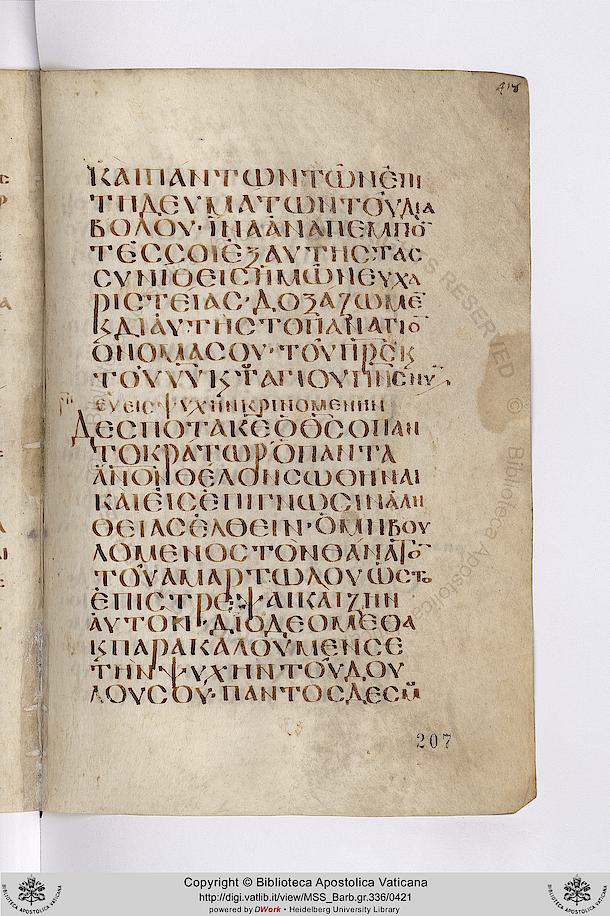 ΚΑΙΠΑΝΤΩΝΤΩΝΕΠΙ
ΤΗΔΕΥΜΑΤΩΝΤΟΥΔΙΑ
ΒΟΛΟΥ· ΙΝΑΑΝΑΠΕΜΠΟ̅
ΤΕΣΣΟΙΕΞΑΥΤΗΣΤΑΣ
ΣΥΝΙΘΕΙΣΗΜΩΝΕΥΧΑ
ΡΙΣΤΕΙΑΣ· ΔΟΞΑΖΩΜΕ̅
ΚΔΙΑΥΤΗΣΤΟΠΑΝΑΓΙΟ̅
ΟΝΟΜΑΣΟΥ· ΤΟΥΠΡΣΚ
ΤΟΥΥΥΚΤΑΓΙΟΥΠΝΣΝΥ
ΕΥΕΙΣΨΥΧΗΝΚΡΙΝΟΜΕΝΗΝ
ΔΕΣΠΟΤΑΚΕΟΘΣΟΠΑΝ
ΤΟΚΡΑΤΩΡΟΠΑΝΤΑ
ΑΝΟΝΘΕΛΟΝΣΩΘΗΝΑΙ
ΚΑΙΕΙΣΕΠΙΓΝΩΣΙΝΑΛΗ
ΘΕΙΑΣΕΛΘΕΙΝ· ΟΜΗΒΟΥ
ΛΟΜΕΝΟΣΤΟΝΘΑΝΑΤΟ̅
ΤΟΥΑΜΑΡΤΩΛΟΥΩΣΤΟ
ΕΠΙΣΤΡΕΨΑΙΚΑΙΖΗΝ
ΑΥΤΟΝ· ΔΙΟΔΕΟΜΕΘΑ
ΚΠΑΡΑΚΑΛΟΥΜΕΝΣΕ
ΤΗΝΨΥΧΗΝΤΟΥΔΟΥ
ΛΟΥΣΟΥ· ΠΑΝΤΟΣΔΕΣΜ
207
RESERVED © Biblioteca Apostolica
Copyright © Biblioteca Apostolica Vaticana
http://digi.vatlib.it/view/MSS_Barb.gr.336/0421
powered by DWork - Heidelberg University Library